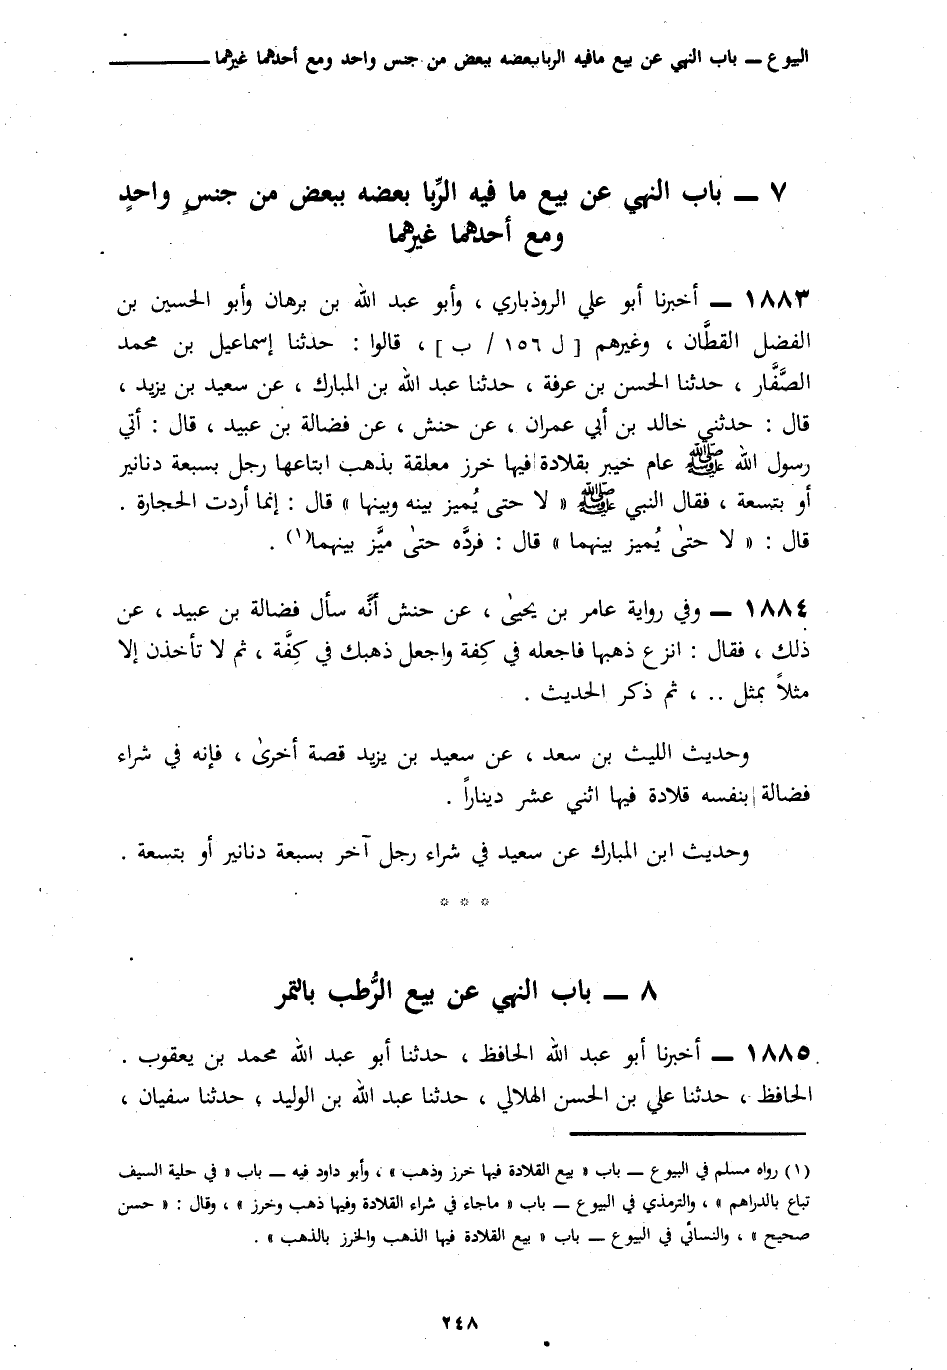 البيوع ــ باب النهي عن بيع مافيه الربابعضه ببعض من جنس واحد ومع أحدهما غيرهما
٧ ــ باب النهي عن بيع ما فيه الرِّبا بعضه ببعض من جنسٍ واحدٍ
ومع أحدهما غيرهما
١٨٨٣ ــ أخبرنا أبو علي الروذباري ، وأبو عبد الله بن برهان وأبو الحسين بن
الفضل القطَّان ، وغيرهم [ ل ١٥٦ / ب ] ، قالوا : حدثنا إسماعيل بن محمد
الصَّفَّار ، حدثنا الحسن بن عرفة ، حدثنا عبد الله بن المبارك ، عن سعيد بن يزيد ،
قال : حدثني خالد بن أبي عمران ، عن حنش ، عن فضالة بن عبيد ، قال : أتي
رسول الله ﷺ عام خيبر بقلادة فيها خرز معلقة بذهب ابتاعها رجل بسبعة دنانير
أو بتسعة ، فقال النبي ﷺ « لا حتى يُميز بينه وبينها » قال : إنما أردت الحجارة .
قال : « لا حتىٰ يُميز بينهما » قال : فردَّه حتىٰ ميَّز بينهما(١) .
١٨٨٤ ــ وفي رواية عامر بن يحيىٰ ، عن حنش أنَّه سأل فضالة بن عبيد ، عن
ذلك ، فقال : انزع ذهبها فاجعله في كِفة واجعل ذهبك في كِفَّة ، ثم لا تأخذن إلا
مثلاً بمثل .. ، ثم ذكر الحديث .
وحديث الليث بن سعد ، عن سعيد بن يزيد قصة أخرىٰ ، فإنه في شراء
فضالة بنفسه قلادة فيها اثني عشر ديناراً .
وحديث ابن المبارك عن سعيد في شراء رجل آخر بسبعة دنانير أو بتسعة .
* * *
٨ ــ باب النهي عن بيع الرُّطب بالتمر
١٨٨٥ ــ أخبرنا أبو عبد الله الحافظ ، حدثنا أبو عبد الله محمد بن يعقوب .
الحافظ ، حدثنا علي بن الحسن الهلالي ، حدثنا عبد الله بن الوليد ، حدثنا سفيان ،
(١) رواه مسلم في البيوع ــ باب « بيع القلادة فيها خرز وذهب » ، وأبو داود فيه ــ باب « في حلية السيف
تباع بالدراهم » ، والترمذي في البيوع ــ باب « ماجاء في شراء القلادة وفيها ذهب وخرز » ، وقال : « حسن
صحيح » ، والنسائي في البيوع ــ باب « بيع القلادة فيها الذهب والخرز بالذهب » .
٢٤٨